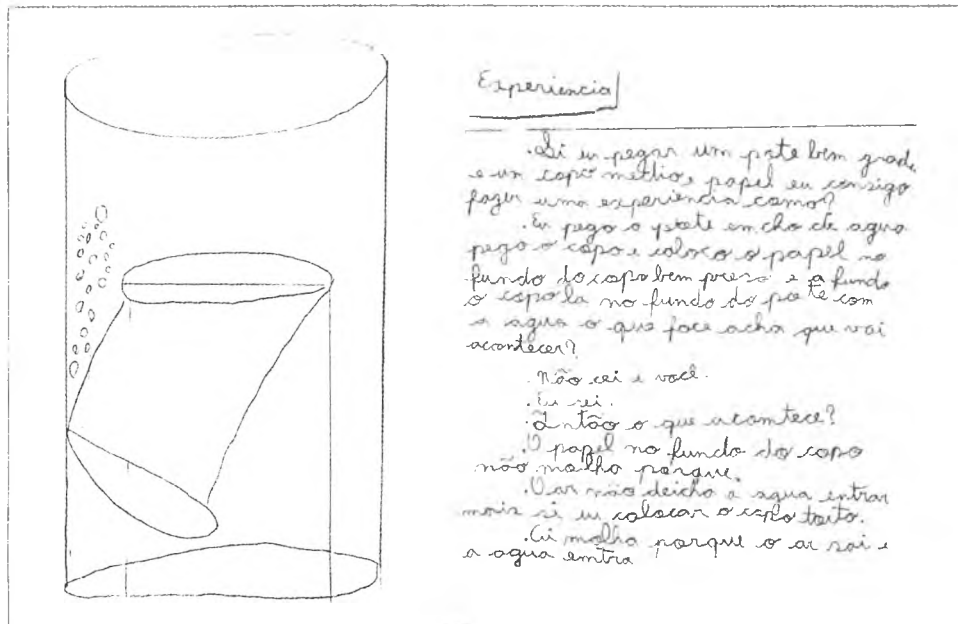 Experiencia
.Si eu pegar um pote bem grade
e un copo mettio e papel eu consigo
fazer uma experiencia como?
.Eu pego o pote emcho de agua
pego o copo e coloco o papel no
fundo do copo bem preso e a fundo
o copo la no fundo do pote com
a agua o que foce acha que vai
acontecer?
.Não cei e você.
.Eu sei.
.Então o que acontece?
.O papel no fundo do copo
não molha porque.
.O ar não deicho a agua entrar
mais si eu colocar o copo torto.
.Ci molha porque o ar sai e
a agua emtra